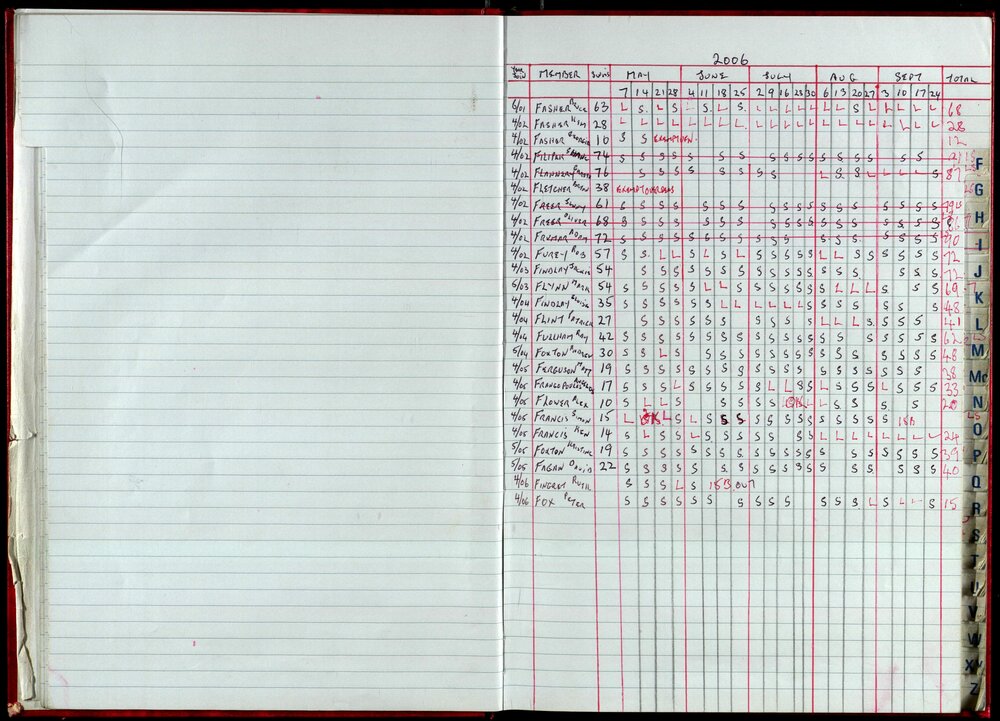 2006
MEMBER SWIMS MAY JUNE JULY AUG SEPT TOTAL
7 14 21 28 4 11 18 25 2 9 16 23 30 6 13 20 27 3 10 17 24
6/01 FASHER BRUCE 63 L S L S L S L S L L L L L L L S L L L L L 68
4/02 FASHER KIM 28 L L L L L L L L L L L L L L L L L L L L L 28
4/02 FASHER GEORGIE 10 S S EXEMPTION 12
4/02 FILIPEK 74 S S S S S S S S S S S S S S S S S
4/02 FLANNERY 76 S S S S S S S S L S S L L L L S 87
4/02 FLETCHER 38 EXEMPT OVERSEAS
4/02 FREER 61 S S S S S S S S S S S S S S S S S S
4/02 FREER OLIVER 68 S S S S S S S S S S S S S S S S S S
4/02 FRUMAR ADAM 72 S S S S S S S S S S S S S S S S S S 90
4/02 FUREY ROB 57 S S L L S L S L S S S S S L S S S S S S 72
4/03 FINDLAY 54 S S S S S S S S S S S S S S S S S S 72
5/03 FLYNN MARK 54 S S S S S L L S S S S S S S L L L S S S 69
4/04 FINDLAY 35 S S S S S S L L L L L L S S S S S S 48
4/04 FLINT PATRICK 27 S S S S S S S S S L L L S S S S 41
4/04 FULLHAM RAY 42 S S S S S S S S S S S S S S S S S S S S 62
5/04 FOXTON 30 S S L S S S S S S S S S S S S S S S S 48
4/05 FERGUSON MATT 19 S S S S S S S S S S S S S S S S S S S 38
4/05 FRANGOPOULOS 17 S S S L S S S S S L L S S L S S S L S S S 33
4/05 FLOWER ALEX 10 S L L S S S S S S L L S S S S 20
4/05 FRANCIS SIMON 15 L L S L S S S S S S S S S S S
4/05 FRANCIS KEN 14 S L S S L S S S S S S S L L L L L L L L 24
5/05 FOXTON KRISTINE 19 S S S S S S S S S S S S S S S S S S S S 39
5/05 FAGAN DAVID 22 S S S S S S S S S S S S S S S S S S 40
4/06 FINGRET RUTH S S S L S 15B OUT
4/06 FOX PETER S S S S S S S S S S S S S S L S L L S 15
F
G
H
I
J
K
L
M
Mc
N
O
P
Q
R
S
T
U
V
W
X Y
Z